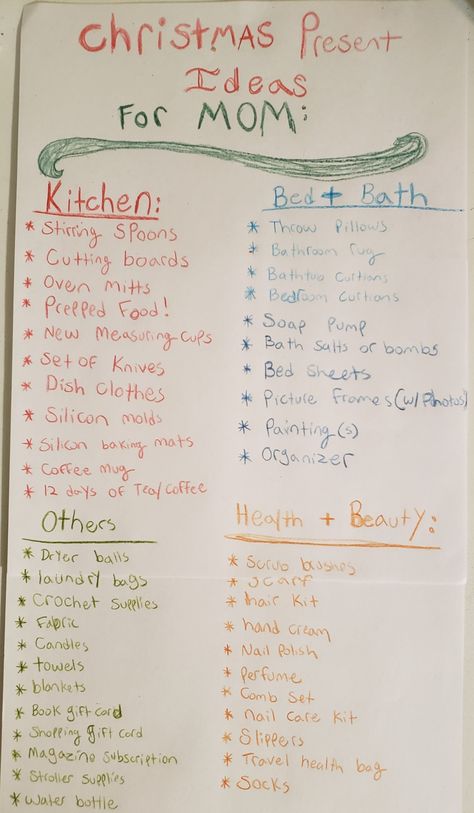 Christmas Present
Ideas
For Mom:
Kitchen:
* Stirring Spoons
* Cutting boards
* Oven mitts
* Prepped Food!
* New Measuring cups
* Set of Knives
* Dish Clothes
* Silicon molds
* Silicon baking mats
* Coffee mug
* 12 days of Tea/Coffee
Bed + Bath
* Throw Pillows
* Bathroom rug
* Bathtub Curtians
* Bedroom Curtians
* Soap Pump
* Bath salts or bombs
* Bed Sheets
* Picture Frames (w/ Photos)
* Painting(s)
* Organizer
Others
* Dryer balls
* laundry bags
* Crochet Supplies
* Fabric
* Candles
* towels
* blankets
* Book gift card
* Shopping gift card
* Magazine subscription
* Stroller supplies
* water bottle
Health + Beauty:
* Scrub brushes
* Scarf
* hair Kit
* hand cream
* Nail Polish
* Perfume
* Comb Set
* nail care kit
* Slippers
* Travel health bag
* Socks